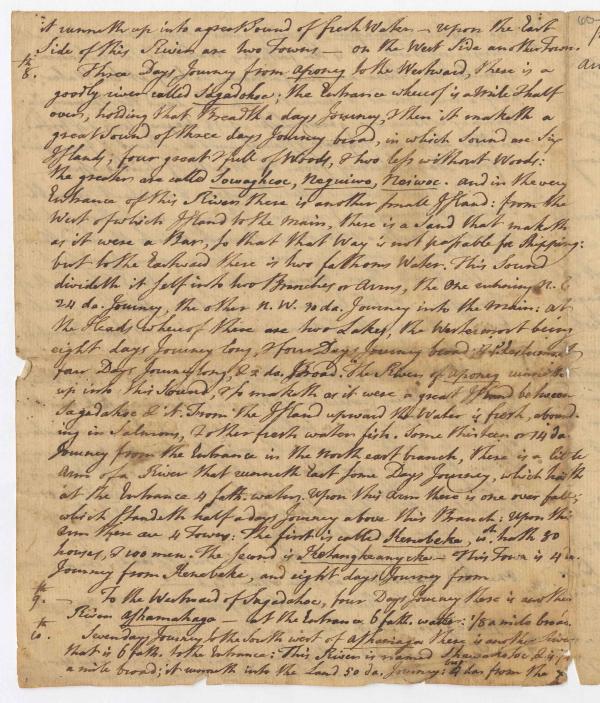 it runneth up into a great Sound of fresh Water – upon the East
Side of this River are two Towns – on the West Side another Town.
8.th Three Days Journey from Aponeg to the Westward, there is a
goodly river called Sagadohoc; the Entrance whereof is a Mile & half
over, holding that Breadth a days Journey, & then it maketh a
great Sound of three days Journey broad, in which Sound are Six
Islands; four great & full of Woods, & two less without Woods:
the greater are called Sowaghcoc, Neguiwo, Neiwoc. and in the very
Entrance of this River there is another small Island: from the
West of which Island to the Main, there is a Sand that maketh
as it were a Bar, so that that Way is not passable for Shipping:
but to the Eastward there is two fathoms Water. This Sound
divideth it self into two Branches or Arms, the one entering N. E
24 da. Journey, the other N. W. 30 da. Journey into the Main: at
the Heads whereof there are two Lakes, the Westermost being
eight days Journey long, & four Days Journey broad;
four Days Journey long & 2 da. broad. The River of Aponeg runneth
up into this Sound, & so maketh as it were a great Island between
Sagadahoc & it. From the Island upward the Water is fresh, abound-
ing in Salmons, & other fresh water fish. Some thirteen or 14 da
Journey from the Entrance in the North east branch, there is a little
Arm of a River that runneth East some Days Journey, which hath
at the Entrance 4 fath. water. Upon this Arm there is one over fall,
which standeth half a days Journey above this Branch: Upon this
Arm there are 4 Towns: The first is called Kenebeke, wch. hath 80
houses, & 100 men. The second is Ketangheanycke – This Town is 4 da.
Journey from Kenebeke, and eight days Journey from
9.th – To the Westward of Sagadahoc, four Days Journey there is another
River Ashamahaga – at the Entrance 6 fath. water: 1/8 a mile broad.
10.th Seven days Journey to the South west of there is another River
that is 6 fath. to the Entrance: This River is named Shawakotoc & is
a mile broad; it runneth into the Land 50 da. Journey: but 4 da. from the